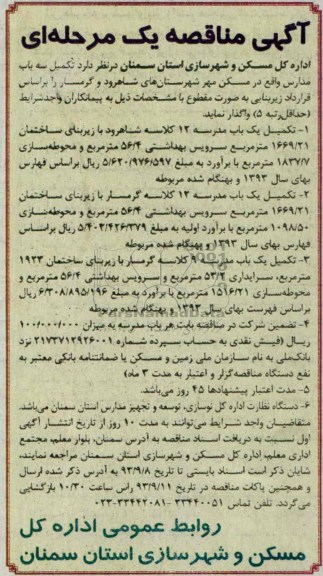 آگهی مناقصه یک مرحله‌ای
اداره کل مسکن و شهرسازی استان سمنان درنظر دارد تکمیل سه باب
مدارس واقع در مسکن مهر شهرستان‌های شاهرود و گرمسار را براساس
قرارداد زیربنایی به صورت مقطوع با مشخصات ذیل به پیمانکاران واجدشرایط
(حداقل‌رتبه ۵) واگذار نماید.
۱- تکمیل یک باب مدرسه ۱۲ کلاسه شاهرود با زیربنای ساختمان
۱۶۶۹/۲۱ مترمربع سرویس بهداشتی ۵۶/۴ مترمربع و محوطه‌سازی
۱۸۳۷/۷ مترمربع با برآورد به مبلغ ۵/۶۲۰/۹۷۶/۵۹۷ ریال براساس فهارس
بهای سال ۱۳۹۳ و بهنگام شده مربوطه
۲- تکمیل یک باب مدرسه ۱۲ کلاسه گرمسار با زیربنای ساختمان
۱۶۶۹/۲۱ مترمربع سرویس بهداشتی ۵۶/۴ مترمربع و محوطه‌سازی
۱۰۹۸/۵۰ مترمربع با برآورد اولیه به مبلغ ۵/۴۰۲/۴۲۶/۳۷۹ ریال براساس
فهارس بهای سال ۱۳۹۳ و بهنگام شده مربوطه
۳- تکمیل یک باب مدرسه ۹ کلاسه گرمسار با زیربنای ساختمان ۱۹۲۳
مترمربع، سرایداری ۵۳/۲ مترمربع و سرویس بهداشتی ۵۶/۴ مترمربع و
محوطه‌سازی ۱۵۱۶/۲۱ مترمربع با برآورد به مبلغ ۶/۳۰۸/۸۹۵/۱۹۶ ریال
براساس فهرست بهای سال ۱۳۹۳ و بهنگام شده مربوطه
۴- تضمین شرکت در مناقصه بابت هر باب مدرسه به میزان ۱۰۰/۰۰۰/۰۰۰
ریال (فیش نقدی به حساب سپرده شماره ۲۱۷۳۷۱۲۹۲۶۰۰۱ نزد
بانک‌ملی به نام سازمان ملی زمین و مسکن یا ضمانتنامه بانکی معتبر به
نفع دستگاه مناقصه‌گزار و اعتبار به مدت ۳ ماه)
۵- مدت اعتبار پیشنهادها ۴۵ روز می‌باشد.
۶- دستگاه نظارت اداره کل نوسازی، توسعه و تجهیز مدارس استان سمنان می‌باشد.
متقاضیان واجد شرایط می‌توانند به مدت ۱۰ روز از تاریخ انتشار آگهی
اول نسبت به دریافت اسناد مناقصه به آدرس سمنان، بلوار معلم، مجتمع
اداری معلم، اداره کل مسکن و شهرسازی استان سمنان مراجعه نمایند،
شایان ذکر است اسناد بایستی تا تاریخ ۹۳/۹/۸ به آدرس ذکر شده ارسال
و همچنین پاکات مناقصه در تاریخ ۹۳/۹/۱۱ راس ساعت ۱۰/۳۰ بازگشایی
می‌گردد. تلفن تماس ۳۳۴۴۰۰۵۱ -۳۳۴۴۲۰۸۱-۰۲۳
روابط عمومی اداره کل
مسکن و شهرسازی استان سمنان